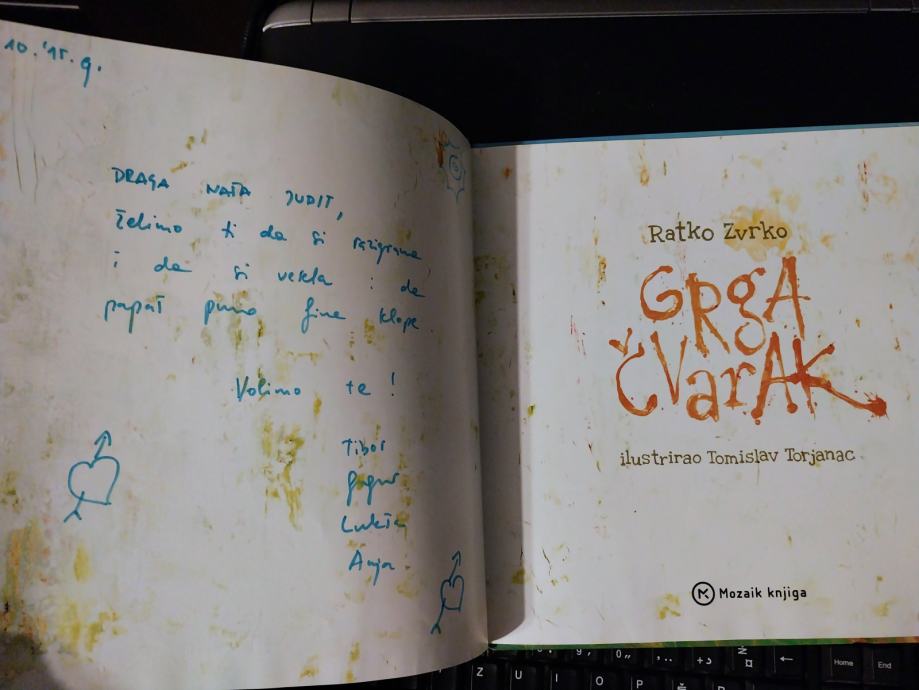 10. '15. g.
DRAGA NAŠA JUDIT,
želimo ti da si razigrana
i da si vesela i da
papaš puno fine klope.
Volimo te!
Tibor
Lukša
Anja
Ratko Zvrko
GRgA
ČVarAK
ilustrirao Tomislav Torjanac
M Mozaik knjiga
Home End
Z U I O P